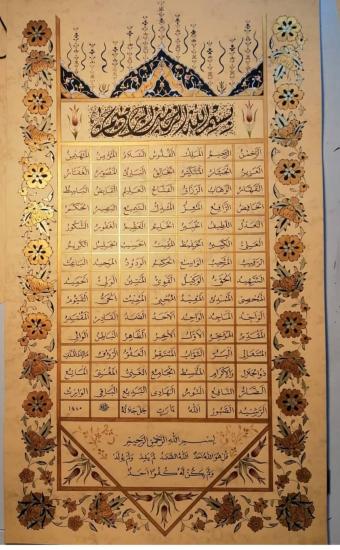 بسم الله الرحمن الرحيم
الرحمن الرحيم الملك القدوس السلام المؤمن المهيمن
العزيز الجبار المتكبر الخالق البارئ المصور الغفار
القهار الوهاب الرزاق الفتاح العليم القابض الباسط
الخافض الرافع المعز المذل السميع البصير الحكم
العدل اللطيف الخبير الحليم العظيم الغفور الشكور
العلي الكبير الحفيظ المقيت الحسيب الجليل الكريم
الرقيب المجيب الواسع الحكيم الودود المجيد الباعث
الشهيد الحق الوكيل القوي المتين الولي الحميد
المحصي المبدئ المعيد المحيي المميت الحي القيوم
الواجد الماجد الواحد الأحد الصمد القادر المقتدر
المقدم المؤخر الأول الآخر الظاهر الباطن الوالي
المتعالي البر التواب المنتقم العفو الرؤوف مالك الملك
ذو الجلال والإكرام المقسط الجامع الغني المغني المانع
الضار النافع النور الهادي البديع الباقي الوارث
الرشيد الصبور الله جل جلاله
بسم الله الرحمن الرحيم
قل هو الله أحد الله الصمد لم يلد ولم يولد
ولم يكن له كفوا أحد